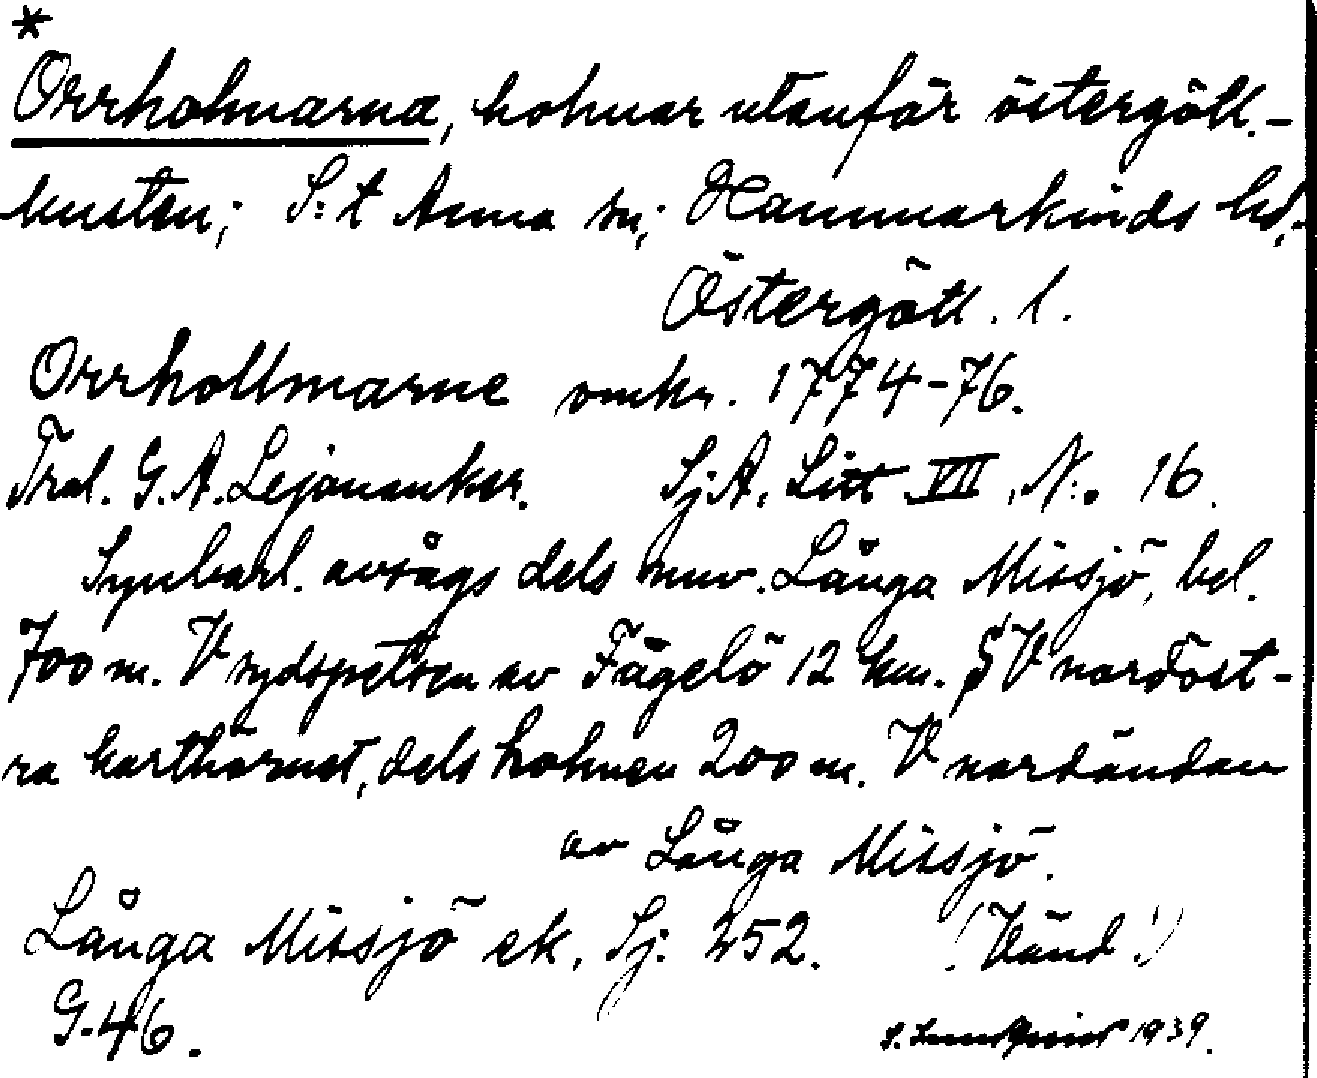 *
Orrholmarna, holmar utanför östergötl.-
kusten; S:t Anna sn; Hammarkinds hd,
Östergötl. l.
Orrhollmarne omkr. 1774-76.
G. A. Lejonanker. Sj.A. Litt VII, N:o 16.
Synbarl. avsågs dels nuv. Långa Missjö, bel.
700 m. V sydspetsen av Fågelö 12 km. SV nordöst-
ra karthörnet, dels holmen 200 m. V nordändan
av Långa Missjö.
Långa Missjö ek. Sj. 252. (Vänd!)
G.46.
1939.